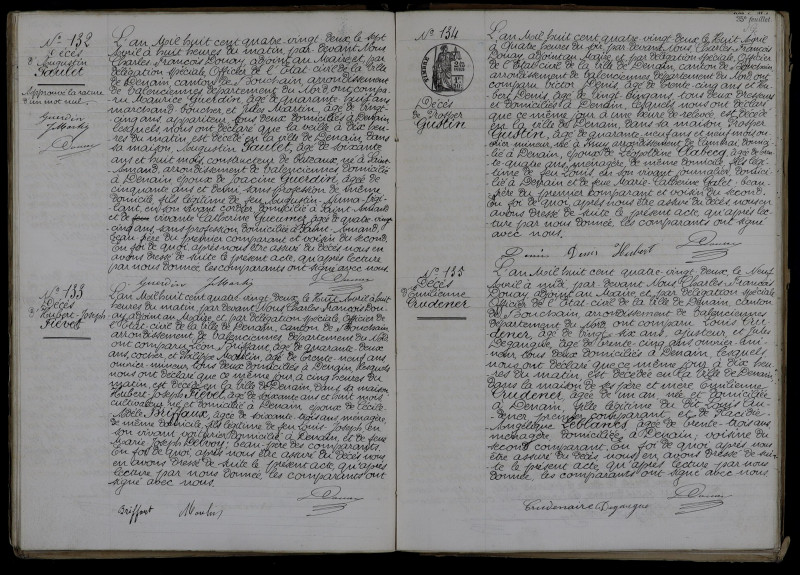 N° 132
Décès
d'Augustin
Saulet
Approuvé la rature
d'un mot nul.
L'an Mil huit cent quatre-vingt-deux, le sept
Avril à huit heures du matin, par-devant Nous
Charles François Douay adjoint au Maire et par
délégation spéciale, Officier de l'Etat civil de la ville
de Denain, canton de Bouchain, arrondissement
de Valenciennes, département du Nord, ont compa-
-ru Maurice Guerdin, âgé de quarante-huit ans
marchand boucher et Jules Marky, âgé de vingt-
cinq ans appariteur, tous deux domiciliés à Denain
lesquels nous ont déclaré que la veille à dix heu-
res du matin est décédé en la ville de Denain, dans
sa maison, Augustin Saulet, âgé de soixante
ans et huit mois, constructeur de bateaux, né à Saint
Amand, arrondissement de Valenciennes domicilié
à Denain, époux de Guerdin, âgée de
cinquante ans et demi, sans profession de même
domicile, fils légitime de feu Augustin
en son vivant cordier domicilié à Saint Amand
et de vivante Catherine âgée de quatre-vingt-
cinq ans, sans profession, domiciliée à Saint Amand,
beau-père du premier comparant et voisin du second.
En foi de quoi, après nous être assuré du décès nous en
avons dressé de suite le présent acte, qu'après lecture
par nous donnée, les comparants ont signé avec nous.
Guerdin J Marky Douay
N° 133
Décès
Hubert-Joseph
Fiévet
L'an Mil huit cent quatre-vingt-deux, le Huit Avril à huit
heures du matin, par-devant Nous Charles François Dou-
ay, adjoint au Maire et par délégation spéciale, Officier de
l'Etat civil de la ville de Denain, canton de Bouchain
arrondissement de Valenciennes, département du Nord
ont comparu Briffaut, âgé de quarante-deux
ans, cocher, et Philippe Moulin, âgé de trente-neuf ans
ouvrier mineur, tous deux domiciliés à Denain, lesquels
nous ont déclaré que ce même jour, à cinq heures du
matin, est décédé en la ville de Denain, dans sa maison
Hubert-Joseph Fiévet, âgé de soixante ans et huit mois
cultivateur, né et domicilié à Denain, époux de Cécile
Adèle Briffaux, âgée de soixante-trois ans, ménagère,
de même domicile, fils légitime de feu Louis-Joseph en
son vivant voiturier domicilié à Denain, et de feue
Marie Joseph, beau-père des comparants.
En foi de quoi, après nous être assuré du décès nous
en avons dressé de suite le présent acte, qu'après
lecture par nous donnée, les comparants ont
signé avec nous.
Briffaut Moulin Douay
35e feuillet
N° 134
TIMBRE
Décès
de Prosper
Gustin
L'an Mil huit cent quatre-vingt-deux, le Huit Avril
à quatre heures du soir, par-devant Nous, Charles François
Douay adjoint au Maire et par délégation spéciale, Officier
de l'Etat civil de la ville de Denain, canton de Bouchain,
arrondissement de Valenciennes, département du Nord, ont
comparu Victor Denis, âgé de trente-cinq ans et Hu-
bert Denis, âgé de vingt-sept ans, tous deux
et domiciliés à Denain, lesquels nous ont déclaré
que ce même jour à une heure de relevée, est décédé
en la ville de Denain, dans sa maison, Prosper
Gustin, âgé de quarante-neuf ans et neuf mois ou-
vrier mineur, né à arrondissement de Cambrai, domici-
lié à Denain, époux de Léopoldine Clabecq, âgée de
quatre ans, ménagère, de même domicile, fils légi-
time de feu Louis, en son vivant journalier domici-
lié à Denain et de feue Marie-Catherine, beau-
père du premier comparant et voisin du second.
En foi de quoi, après nous être assuré du décès nous en
avons dressé de suite le présent acte, qu'après lec-
ture par nous donnée, les comparants ont signé
avec nous.
Denis Hubert Douay
N° 135
Décès
d'Emilienne
Crudener
L'an Mil huit cent quatre-vingt-deux, le Neuf
Avril à midi, par-devant Nous Charles François
Douay adjoint au Maire et par délégation spéciale
Officier de l'Etat civil de la ville de Denain, canton
de Bouchain, arrondissement de Valenciennes
département du Nord, ont comparu Louis Cru-
dener, âgé de vingt-six ans, ajusteur et Jules
Degargue, âgé de trente-cinq ans, ouvrier mi-
neur, tous deux domiciliés à Denain, lesquels
nous ont déclaré que ce même jour à dix heu-
res du matin, est décédée en la ville de Denain,
dans la maison de ses père et mère, Emilienne
Crudener, âgée de un an, née et domiciliée
à Denain, fille légitime du dit Louis Cru-
dener premier comparant, et de
Angélique Leblancks, âgée de trente-trois ans
ménagère, domiciliée à Denain; voisine du
second comparant. En foi de quoi, après nous
être assuré du décès nous en avons dressé de sui-
te le présent acte qu'après lecture par nous
donnée, les comparants ont signé avec nous.
Degargue Douay